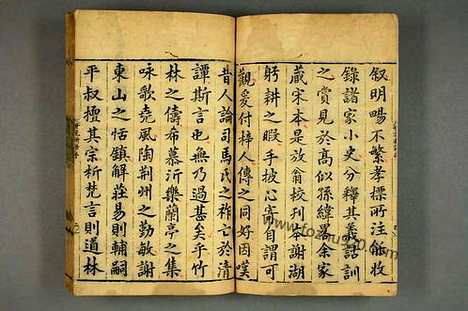 叙明暢不繁孝標所注能收
錄諸家小史分釋其義詁訓
之賞見於高似孫緯畧余家
藏宋本是放翁校刊本謝湖
躬耕之暇手披心寄自謂可
觀爰付梓人傳之同好因嘆
昔人論司馬氏之祚亡於清
譚斯言也無乃過甚矣乎竹
林之儔希慕沂樂蘭亭之集
咏歌堯風陶荊州之勤敏謝
東山之恬鎮解莊易則輔嗣
平叔擅其宗析梵言則道林